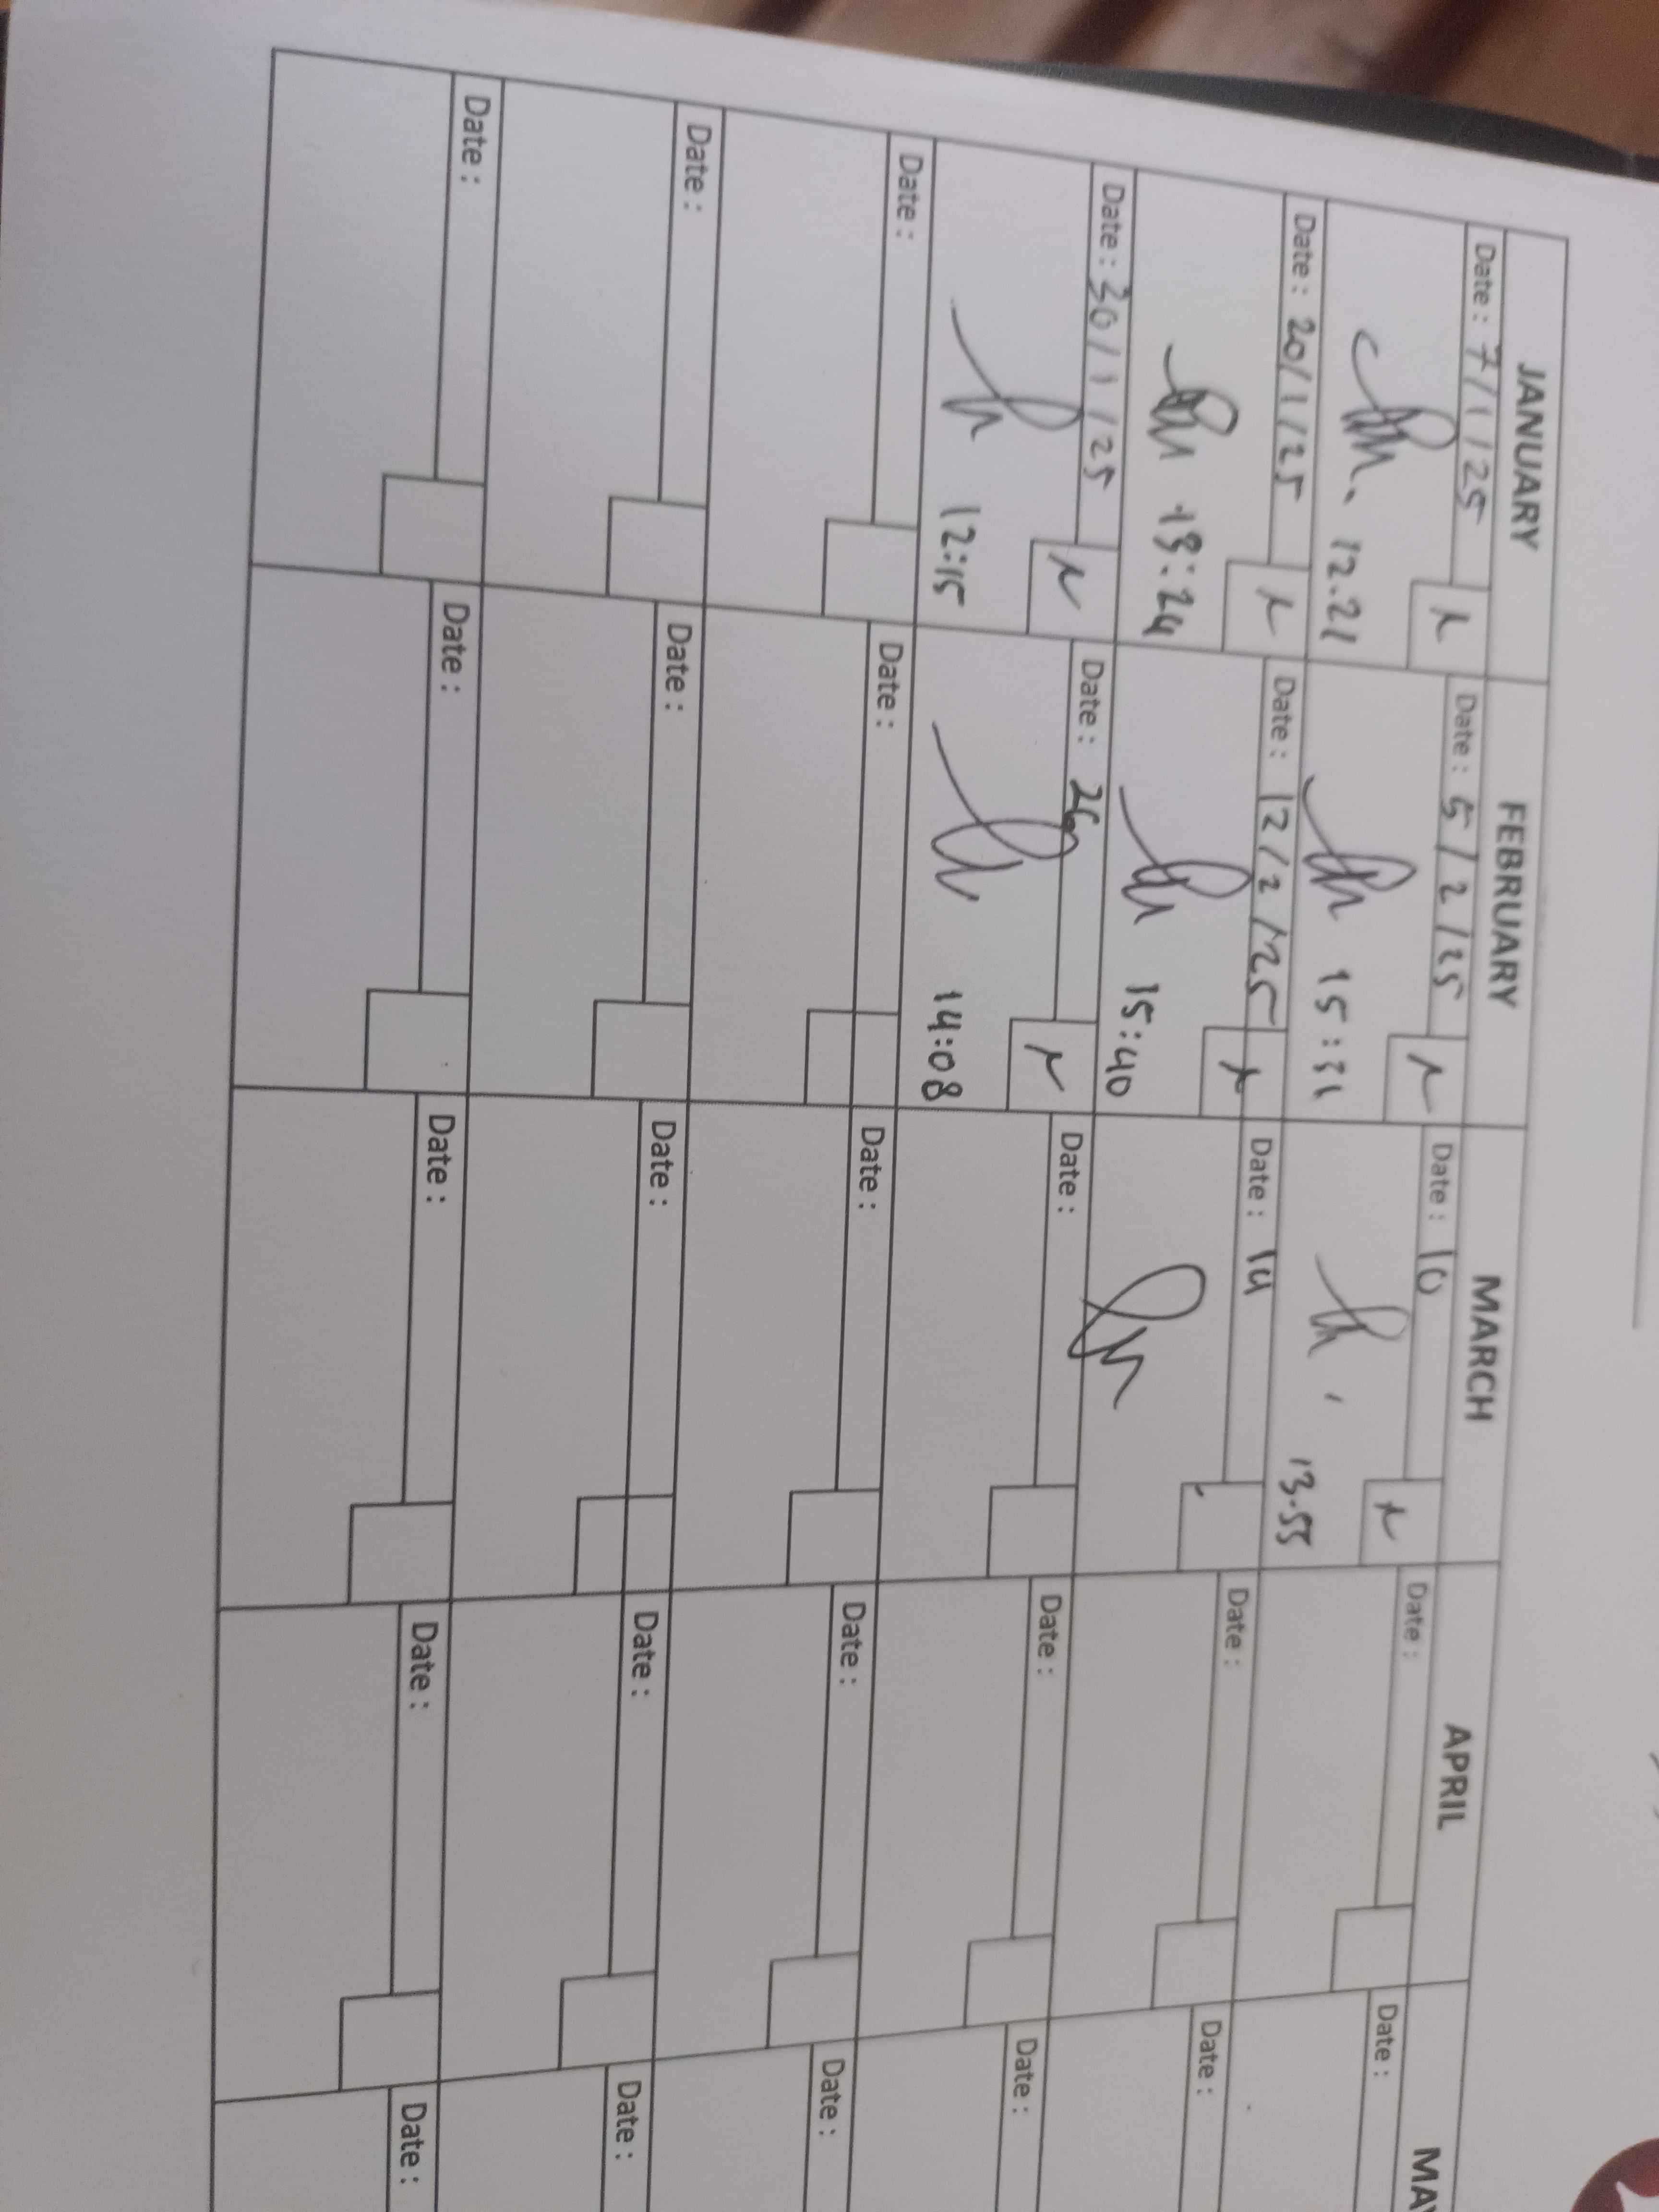 JANUARY FEBRUARY MARCH APRIL MAY
Date : 7/1/25 Date : 5/2/25 Date : 10 Date : Date :
12.21 15:31 13.55
Date : 20/1/25 Date : 12/2/25 Date : 14 Date : Date :
13:24 15:40
Date : 30/1/25 Date : 26 Date : Date : Date :
12:15 14:08
Date : Date : Date : Date : Date :
Date : Date : Date : Date : Date :
Date : Date : Date : Date : Date :